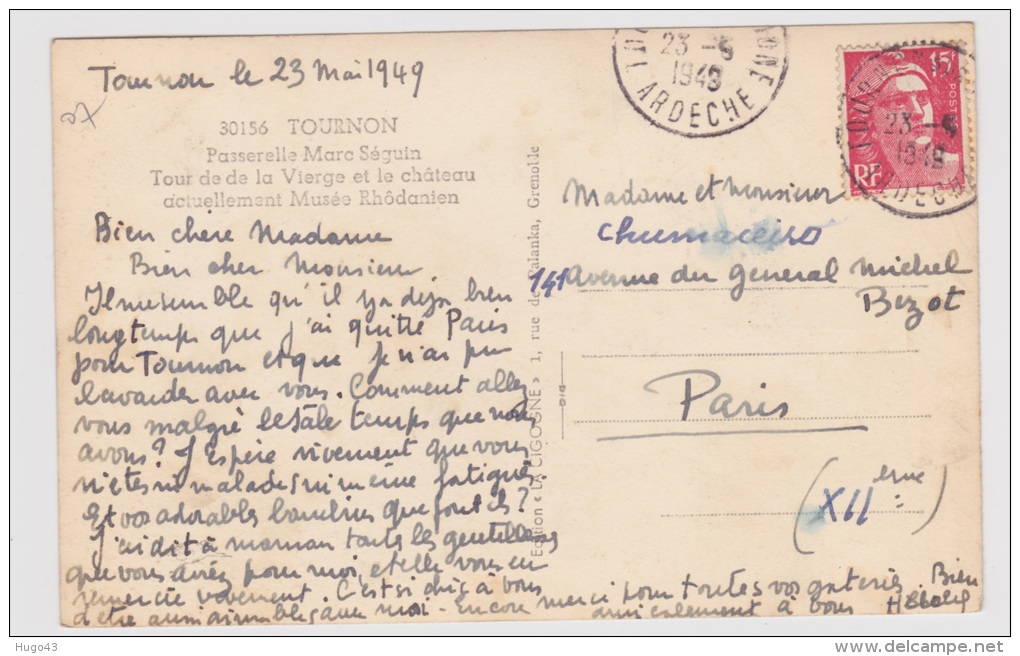 Tournon le 23 Mai 1949
30156 TOURNON
Passerelle Marc Séguin
Tour de de la Vierge et le château
actuellement Musée Rhôdanien
Bien chère Madame
Bien cher Monsieur,
Il me semble qu'il y a déjà bien
longtemps que j'ai quitté Paris
pour Tournon et que je n'ai pu
bavarder avec vous. Comment allez
vous malgré le sale temps que nous
avons? J'espère vivement que vous
n'êtes ni malades, ni même fatigués.
Et vos adorables que font-ils?
J'ai dit à maman toutes les gentillesses
que vous avez pour moi, et elle vous en
remercie vivement. C'est si chic à vous
d'être aussi aimables avec moi - encore merci pour toutes vos gateries. Bien
amicalement à vous
Edition « LA CIGOGNE » 1, rue de Palanka, Grenoble
15F
POSTES
RF
23 -5
1949
ARDECHE
TOURNON
23 -5
1949
Madame et Monsieur
Chumaceiro
141 Avenue du General Michel
Bizot
Paris
(XII eme)
Hugo43
www.delcampe.net